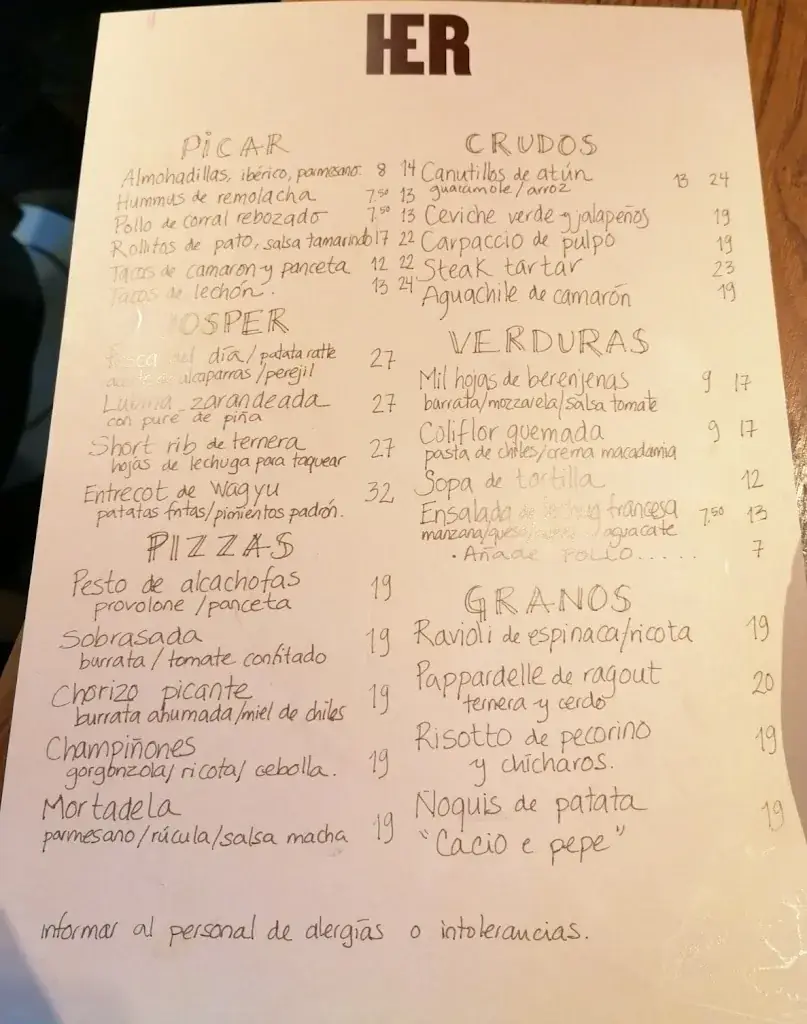 HER
PICAR
Almohadillas, ibérico, parmesano. 8 14
Hummus de remolacha 7.50 13
Pollo de corral rebozado 7.50 13
Rollitos de pato, salsa tamarindo 17 22
Tacos de camaron y panceta 12 22
Tacos de lechón. 13 24
JOSPER
del día / patata ratte 27
alcaparras / perejil
Lubina zarandeada 27
con puré de piña
Short rib de ternera 27
hojas de lechuga para taquear
Entrecot de Wagyu 32
patatas fritas/pimientos padrón.
PIZZAS
Pesto de alcachofas 19
provolone / panceta
Sobrasada 19
burrata / tomate confitado
Chorizo picante 19
burrata ahumada/miel de chiles
Champiñones 19
gorgonzola/ ricota/ cebolla.
Mortadela 19
parmesano/rúcula/salsa macha
CRUDOS
Canutillos de atún 13 24
guacamole / arroz
Ceviche verde y jalapeños 19
Carpaccio de pulpo 19
Steak tartar 23
Aguachile de camarón 19
VERDURAS
Mil hojas de berenjenas 9 17
barrata/mozzarela/salsa tomate
Coliflor quemada 9 17
pasta de chiles/crema macadamia
Sopa de tortilla 12
Ensalada de lechuga francesa 7.50 13
manzana/queso/ aguacate
• Añade POLLO..... 7
GRANOS
Ravioli de espinaca/ricota 19
Pappardelle de ragout 20
ternera y cerdo
Risotto de pecorino 19
y chícharos.
Ñoquis de patata 19
"Cacio e pepe"
informar al personal de alergias o intolerancias.